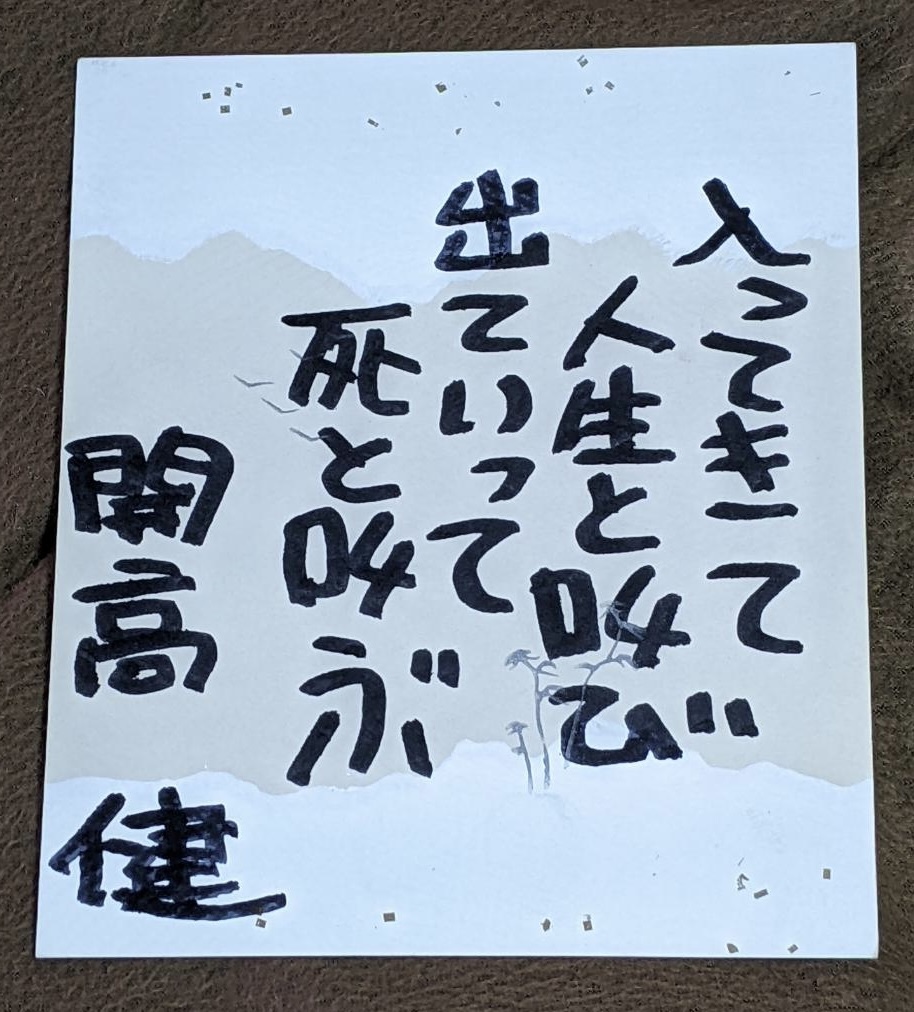 入ってきて
人生と叫び
出ていって
死と叫ぶ
開高 健